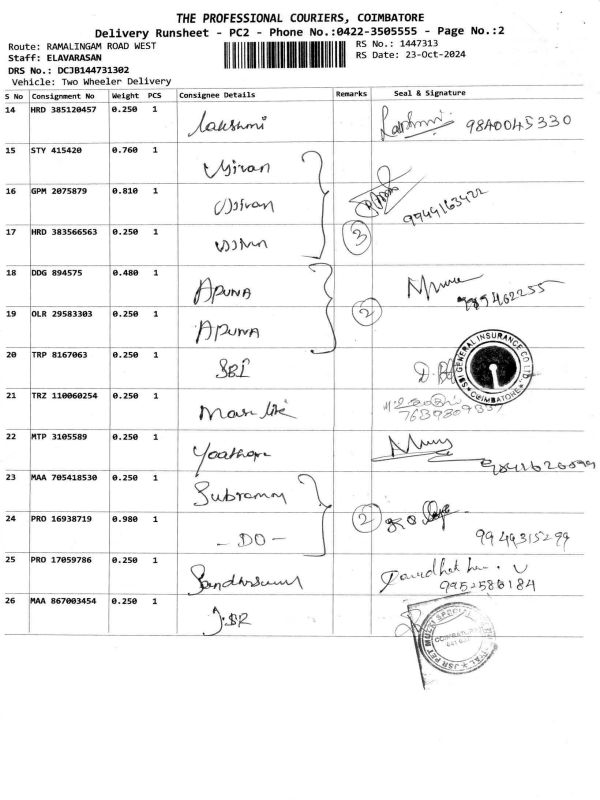 THE PROFESSIONAL COURIERS, COIMBATORE
Delivery Runsheet - PC2 - Phone No.:0422-3505555 - Page No.:2
Route: RAMALINGAM ROAD WEST RS No.: 1447313
Staff: ELAVARASAN RS Date: 23-Oct-2024
DRS No.: DCJB144731302
Vehicle: Two Wheeler Delivery
S No Consignment No Weight PCS Consignee Details Remarks Seal & Signature
14 HRD 385120457 0.250 1 Lakshmi Lakshmi 9840045330
15 STY 415420 0.760 1
16 GPM 2075879 0.810 1 9944163422
17 HRD 383566563 0.250 1 3
18 DDG 894575 0.480 1 APUNA
19 OLR 29583303 0.250 1 APUNA 2
20 TRP 8167063 0.250 1 SBI SBI GENERAL INSURANCE CO LTD COIMBATORE
21 TRZ 110060254 0.250 1
22 MTP 3105589 0.250 1
23 MAA 705418530 0.250 1
24 PRO 16938719 0.980 1 - DO - 2 9949315299
25 PRO 17059786 0.250 1 9952580184
26 MAA 867003454 0.250 1 JSR PET MULTI SPECIALITY